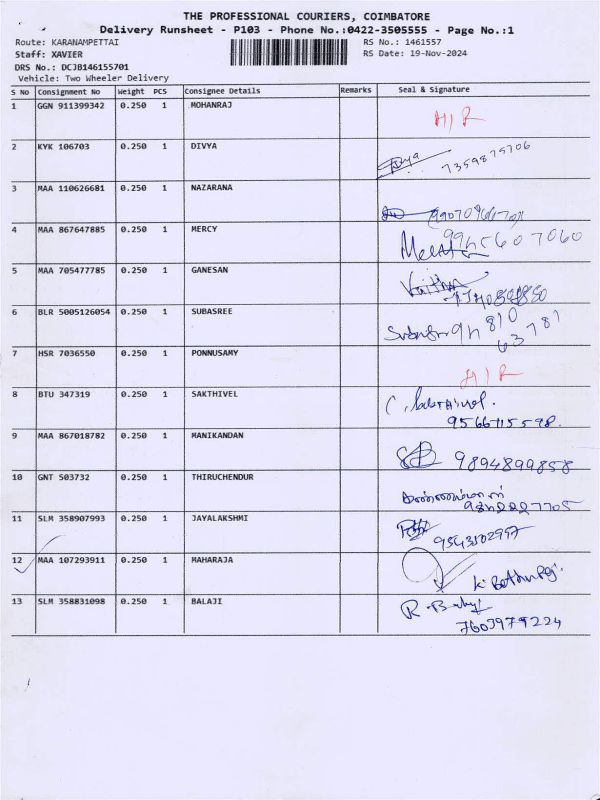 THE PROFESSIONAL COURIERS, COIMBATORE
Delivery Runsheet - P103 - Phone No.:0422-3505555 - Page No.:1
Route: KARANAMPETTAI RS No.: 1461557
Staff: XAVIER RS Date: 19-Nov-2024
DRS No.: DCJB146155701
Vehicle: Two Wheeler Delivery
S No Consignment No Weight PCS Consignee Details Remarks Seal & Signature
1 GGN 911399342 0.250 1 MOHANRAJ H/R
2 KYK 106703 0.250 1 DIVYA
7359875706
3 MAA 110626681 0.250 1 NAZARANA
4 MAA 867647885 0.250 1 MERCY 9945607060
5 MAA 705477785 0.250 1 GANESAN
6 BLR 5005126054 0.250 1 SUBASREE
7 HSR 7036550 0.250 1 PONNUSAMY H/R
8 BTU 347319 0.250 1 SAKTHIVEL
9566715598.
9 MAA 867018782 0.250 1 MANIKANDAN 9894899858
10 GNT 503732 0.250 1 THIRUCHENDUR
9842227705
11 SLM 358907993 0.250 1 JAYALAKSHMI
9543502957
12 MAA 107293911 0.250 1 MAHARAJA
13 SLM 358831098 0.250 1 BALAJI R. Balaji
7603979224